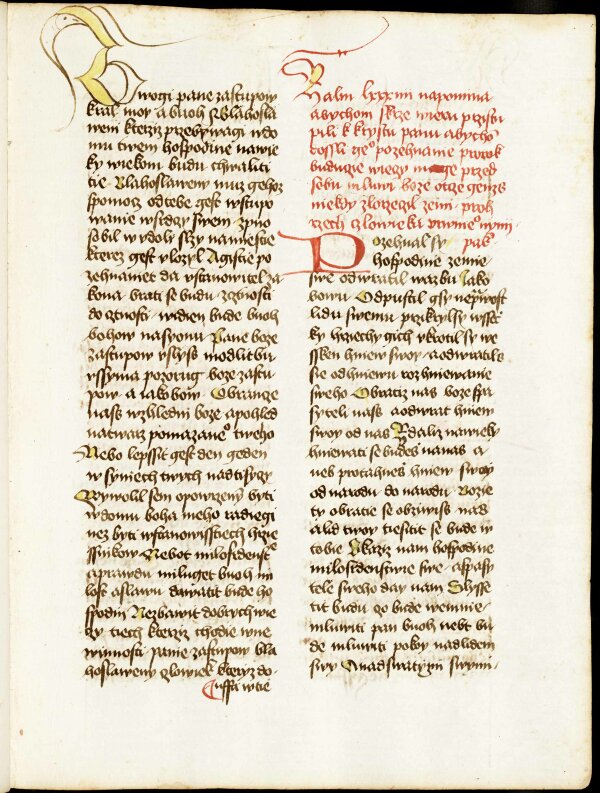 twogi pane zastupow
kral moy a buoh Sblahosla
weni kterziz przebywagi wdo
mu twem hospodine nawie
ky wiekom budu chwaliti
tie Blahoslaweny muz gehoz
spomocz odtebe gest wstupo
wanie wsrdczy swem zpuo
sobil wudoli slzy namiestie
kterez gest vlozyl Agistie po
zehnanie da vstanowitel za
kona brati se budu zctnosti
do ctnosti widien bude buoh
bohow nasyonu Pane boze
zastupow vslyss modlitbu
vssyma pozorug boze zastu
pow a iakobow Obrancze
nass wzhledni boze apohled
natwarz pomazaneo tweho
Nebo lepssie gest den geden
w syniech twych nadtisycz
Wywolil sem opowrzeny byti
wdomu boha meho radiegi
nez byti wstanowisstiech hrzie
ssnikow Nebot milosrdenstwie
aprawdu miluget buoh mi
lost aslawu dawatit bude ho
spodin Nezbawit dobrych wie
czy tiech kterziz chodie wne
winnosti pane zastupow bla
hoslaweny czlowiek kteryz do
uffa wtie
Zalm lxxxiiii napomina
abychom skrze wieru przistu
pili k krystu panu abycho
dossli geo pozehnanie prorok
buducie wieczy mage przed
sebu mluwi boze otcze genzs
niekdy zlorzeczil zemi proh
rzech czlowieka prwnieo nyni
pak
Pozehnal sy
hospodine zemie
swe odwratil wazbu Jako
bowu Odpustil gsy neprawost
lidu swemu przikryl sy wssec
ky hrziechy gich vkrotil sy we
ssken hniew swoy aodwratil se
sie odhniewu rozhniewanie
sweho Obratiz nas boze spa
syteli nass aodwrat hniew
swoy od nas Zdaliz nawieky
hniewati se budes nanas a
neb protahnes hniew swoy
od narodu do narodu Boze
ty obratie se obziwiss nas
a lid twoy tiessiti se bude w
tobie Vkaziz nam hospodine
milosrdenstwie swe aspasy
tele sweho day nam Slysse
tit budu czo bude wemnie
mluwiti pan buoh nebt bu
de mluwiti pokoy nad lidem
swym Anadswatymi swymi